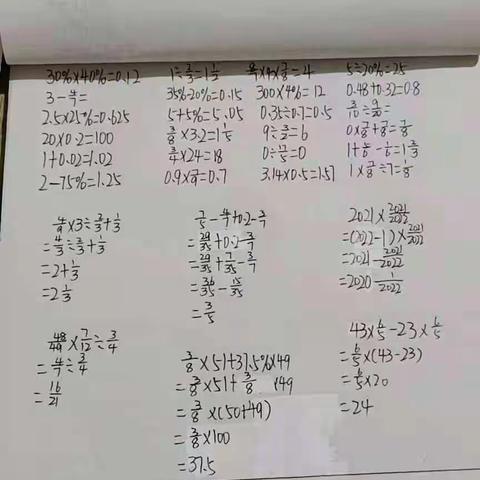 30%×40%=0.12
3-4/7=
2.5×25%=0.625
20×0.2=100
1+0.02=1.02
2-75%=1.25
1÷2/3=1 1/2
35%-20%=0.15
5+5%=5.05
3/8×3.2=1 1/5
3/4×24=18
×9×=4
300×4%=12
0.35÷0.7=0.5
9÷3/2=6
0÷=0
3.14×0.5=1.57
5÷20%=25
0.48+0.32=0.8
3/10÷9/20=
0×7/8+7/8=7/8
1×7/8÷7=1/8
4/9×3÷2/3+1/3
=4/3÷2/3+1/3
=2+1/3
=2 1/3
7/5-4/7+0.2-3/7
=29/35+0.2-3/7
=29/35+7/35-3/7
=36/35-15/35
=3/5
2021×2021/2022
=(2022-1)×2021/2022
=2021-2021/2022
=2020 1/2022
48/49×7/12÷3/4
=4/7÷3/4
=16/21
3/8×51+37.5%×49
=3/8×51+3/8×49
=3/8×(50+49)
=3/8×100
=37.5
43×6/5-23×6/5
=6/5×(43-23)
=6/5×20
=24